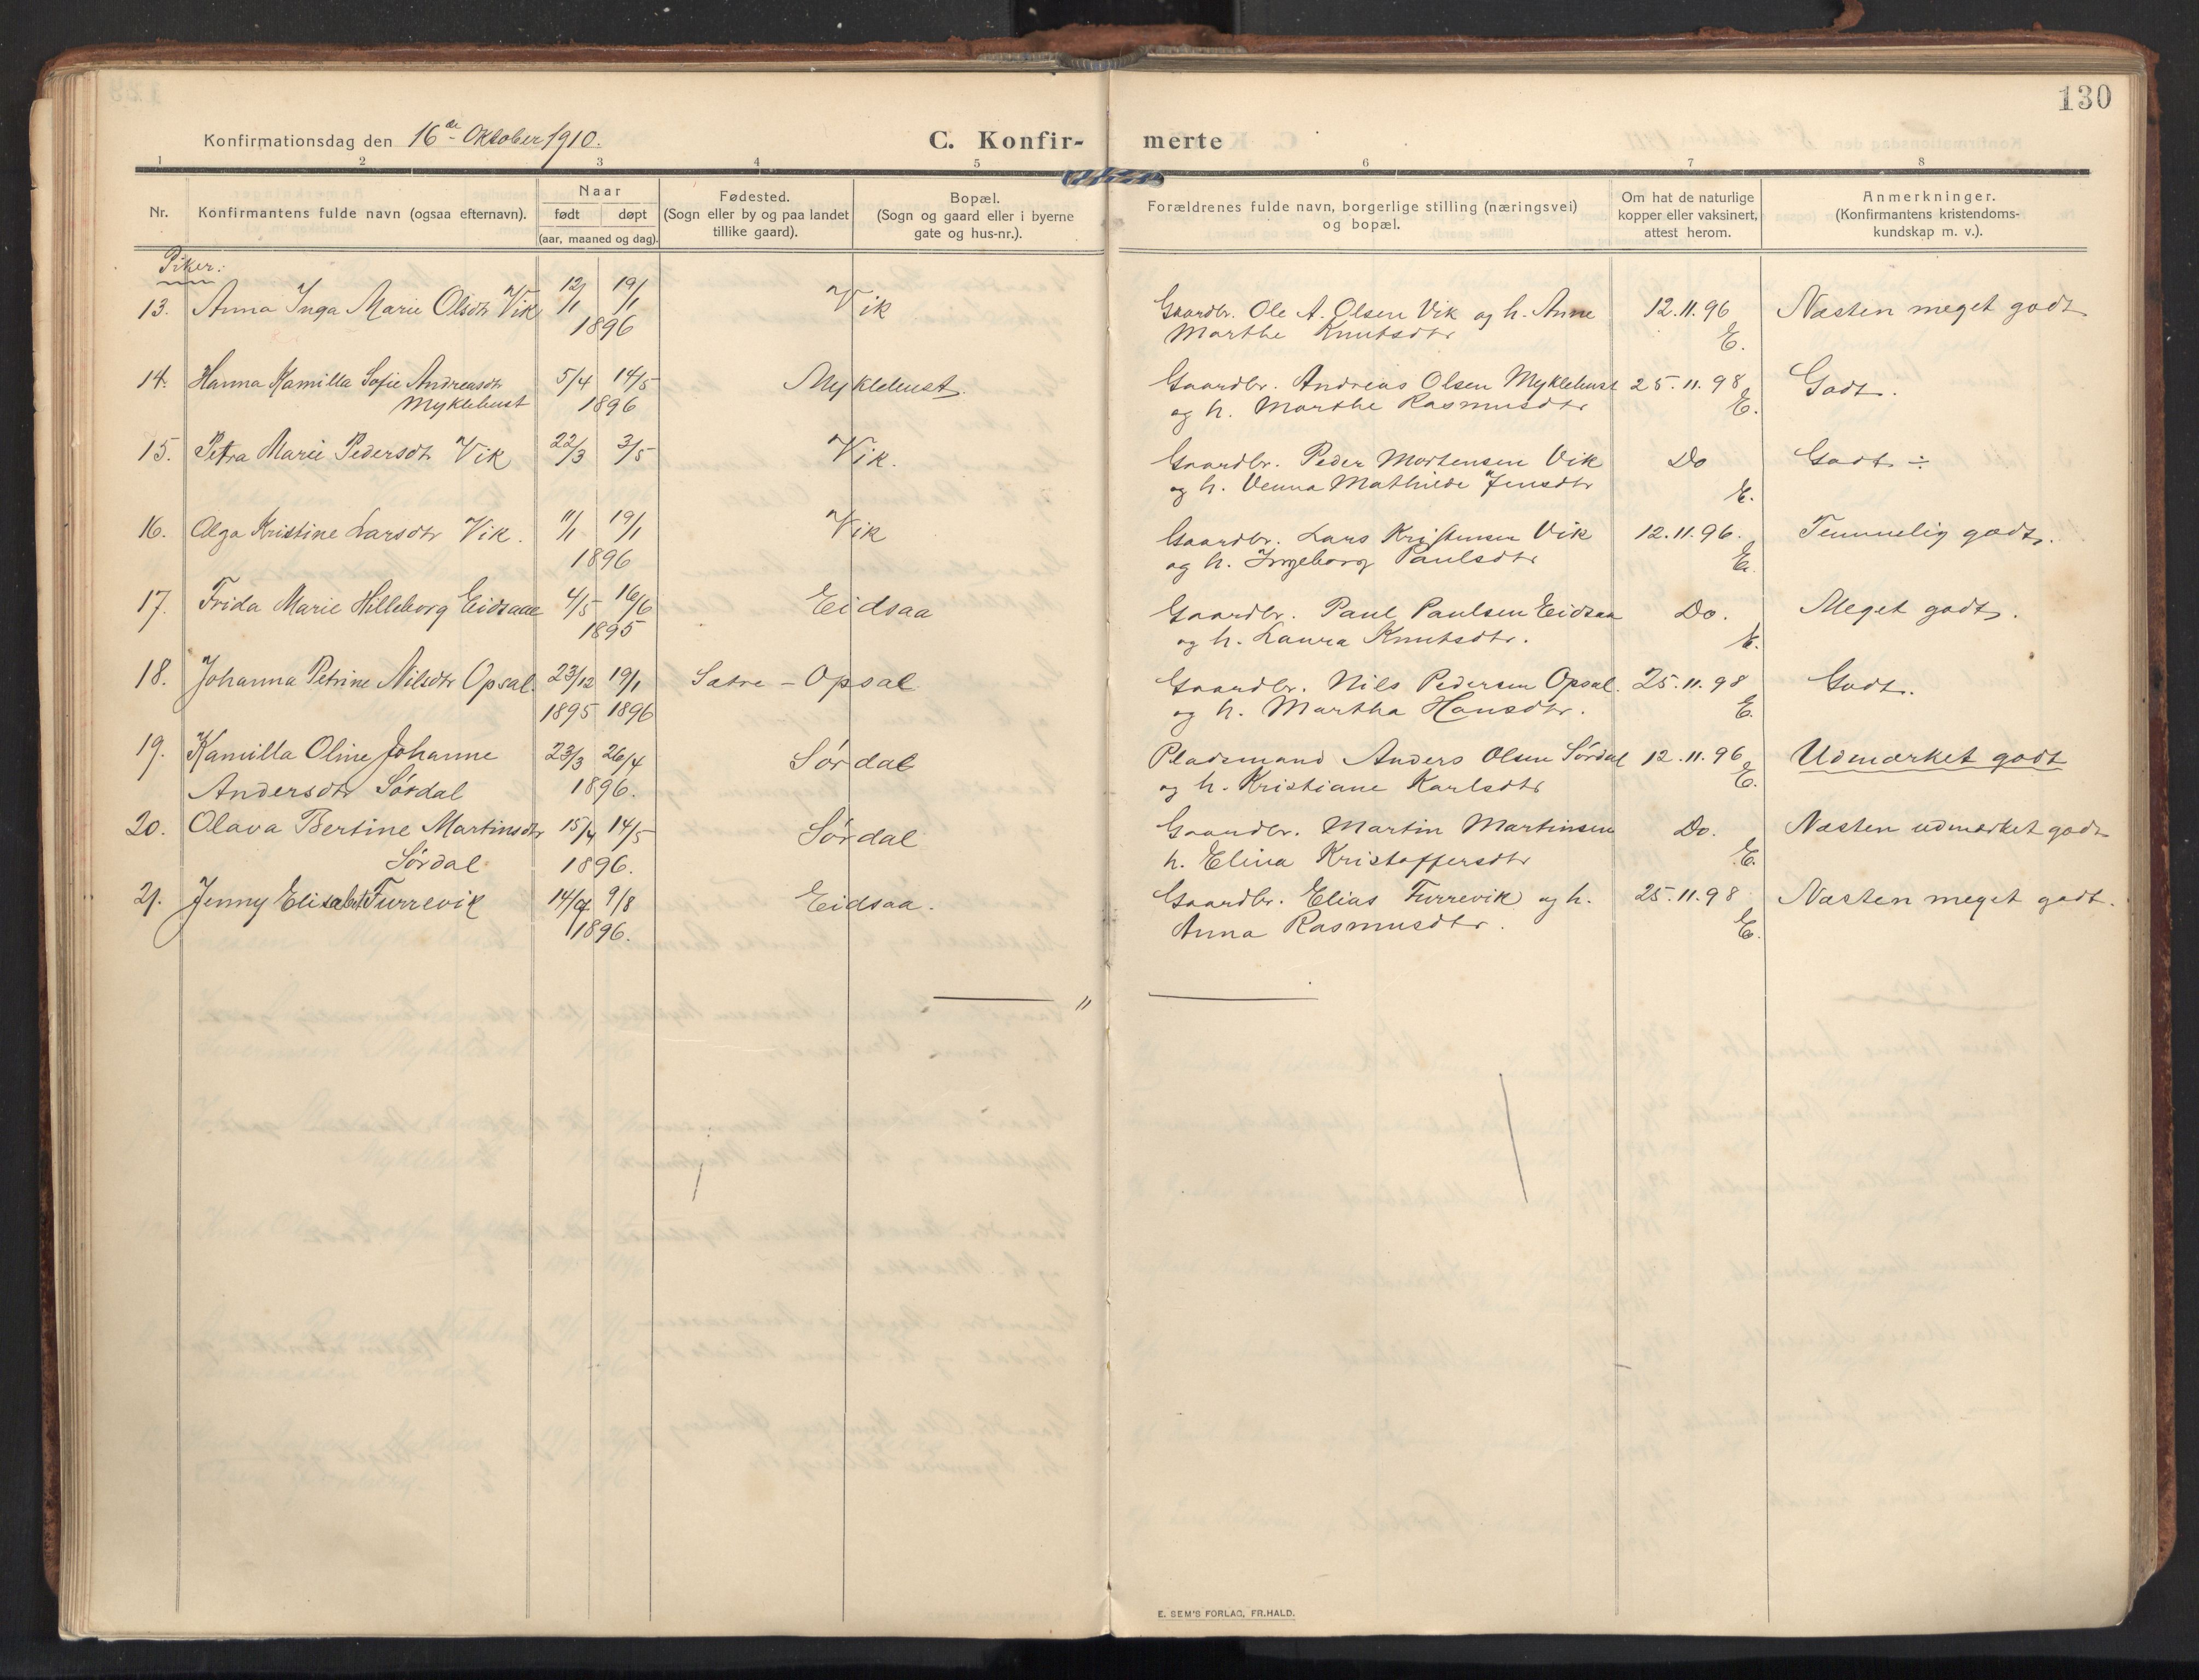 130
Konfirmationsdag den 16de Oktober 1910.
C. Konfir- merte
1 2 3 4 5 6 7 8
Nr.
Konfirmantens fulde navn (ogsaa efternavn).
Naar
født døpt
(aar, maaned og dag).
Fødested.
(Sogn eller by og paa landet
tillike gaard).
Bopæl.
(Sogn og gaard eller i byerne
gate og hus-nr.).
Forældrenes fulde navn, borgerlige stilling (næringsvei)
og bopæl.
Om hat de naturlige
kopper eller vaksinert,
attest herom.
Anmerkninger.
(Konfirmantens kristendoms-
kundskap m. v.).
Piker:
13. Anna Inga Marie Olsdtr Vik 12/1 19/1 Vik Gaardbr. Ole A. Olsen Vik og h. Anne 12.11.96 Næsten meget godt
1896 Marthe Knutsdtr E.
14. Hanna Kamilla Sofie Andreasdtr 5/4 14/5 Myklebust. Gaardbr. Andreas Olsen Myklebust 25.11.98 Godt.
Myklebust 1896 og h. Marthe Rasmusdtr E.
15. Petra Marie Pedersdtr Vik 22/3 3/5 Vik. Gaardbr. Peder Mortensen Vik Do Godt ÷
og h. Venna Mathilde Jensdtr E.
16. Olga Kristine Larsdtr Vik. 11/1 19/1 Vik Gaardbr. Lars Kristensen Vik 12.11.96. Temmelig godt.
1896 og h. Ingeborg Paulsdtr E.
17. Frida Marie Hilleborg Eidsaa 4/5 16/6 Eidsaa Gaardbr. Paul Paulsen Eidsaa Do. Meget godt.
1895 og h. Laura Knutsdtr. E.
18. Johanna Petrine Nilsdtr Opsal. 23/12 19/1 Sætre - Opsal Gaardbr. Nils Pedersen Opsal. 25.11.98 Godt.
1895 1896 og h. Martha Hansdtr. E.
19. Kamilla Oline Johanne 23/3 26/4 Sørdal Pladsmand Anders Olsen Sørdal 12.11.96 Udmærket godt
Andersdtr Sørdal 1896. og h. Kristiane Karlsdtr E.
20. Olava Bertine Martinsdtr 15/4 14/5 Sørdal Gaardbr. Martin Martinsen Do. Næsten udmærket godt
Sørdal 1896. h. Elina Kristoffersdtr E.
21. Jenny Elisabet Furrevik 9/8 Eidsaa. Gaardbr. Elias Furrevik og h. 25.11.98 Næsten meget godt.
1896. Anna Rasmusdtr. E.
"
E. SEM'S FORLAG, FR.HALD.